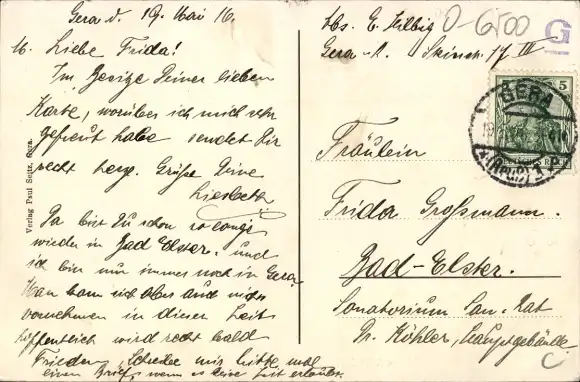 Gera d. 19. Mai 16
M. Liebe Frida!
Im Besitze Deiner lieben
Karte, worüber ich mich sehr
gefreut habe sendet Dir
recht herz. Grüße Deine
Liesbeth
Da bist Du schon so lange
wieder in Bad Elster. und
ich bin nun immer noch in Gera.
Man kann sich aber auch nichts
vornehmen in dieser Zeit
hoffentlich wird recht bald
Frieden, Schreibe mir bitte mal
einen Brief, wenn es Deine Zeit erlaubt.
Verlag Paul Seitz, Gera.
Abs. E. Hilbig
Gera-R. 17 III
0-6500
G
5
GERA
Fräulein
Frida Großmann.
Bad-Elster.
Sanatorium San. Rat
Dr. Köhler, Hauptgebäude